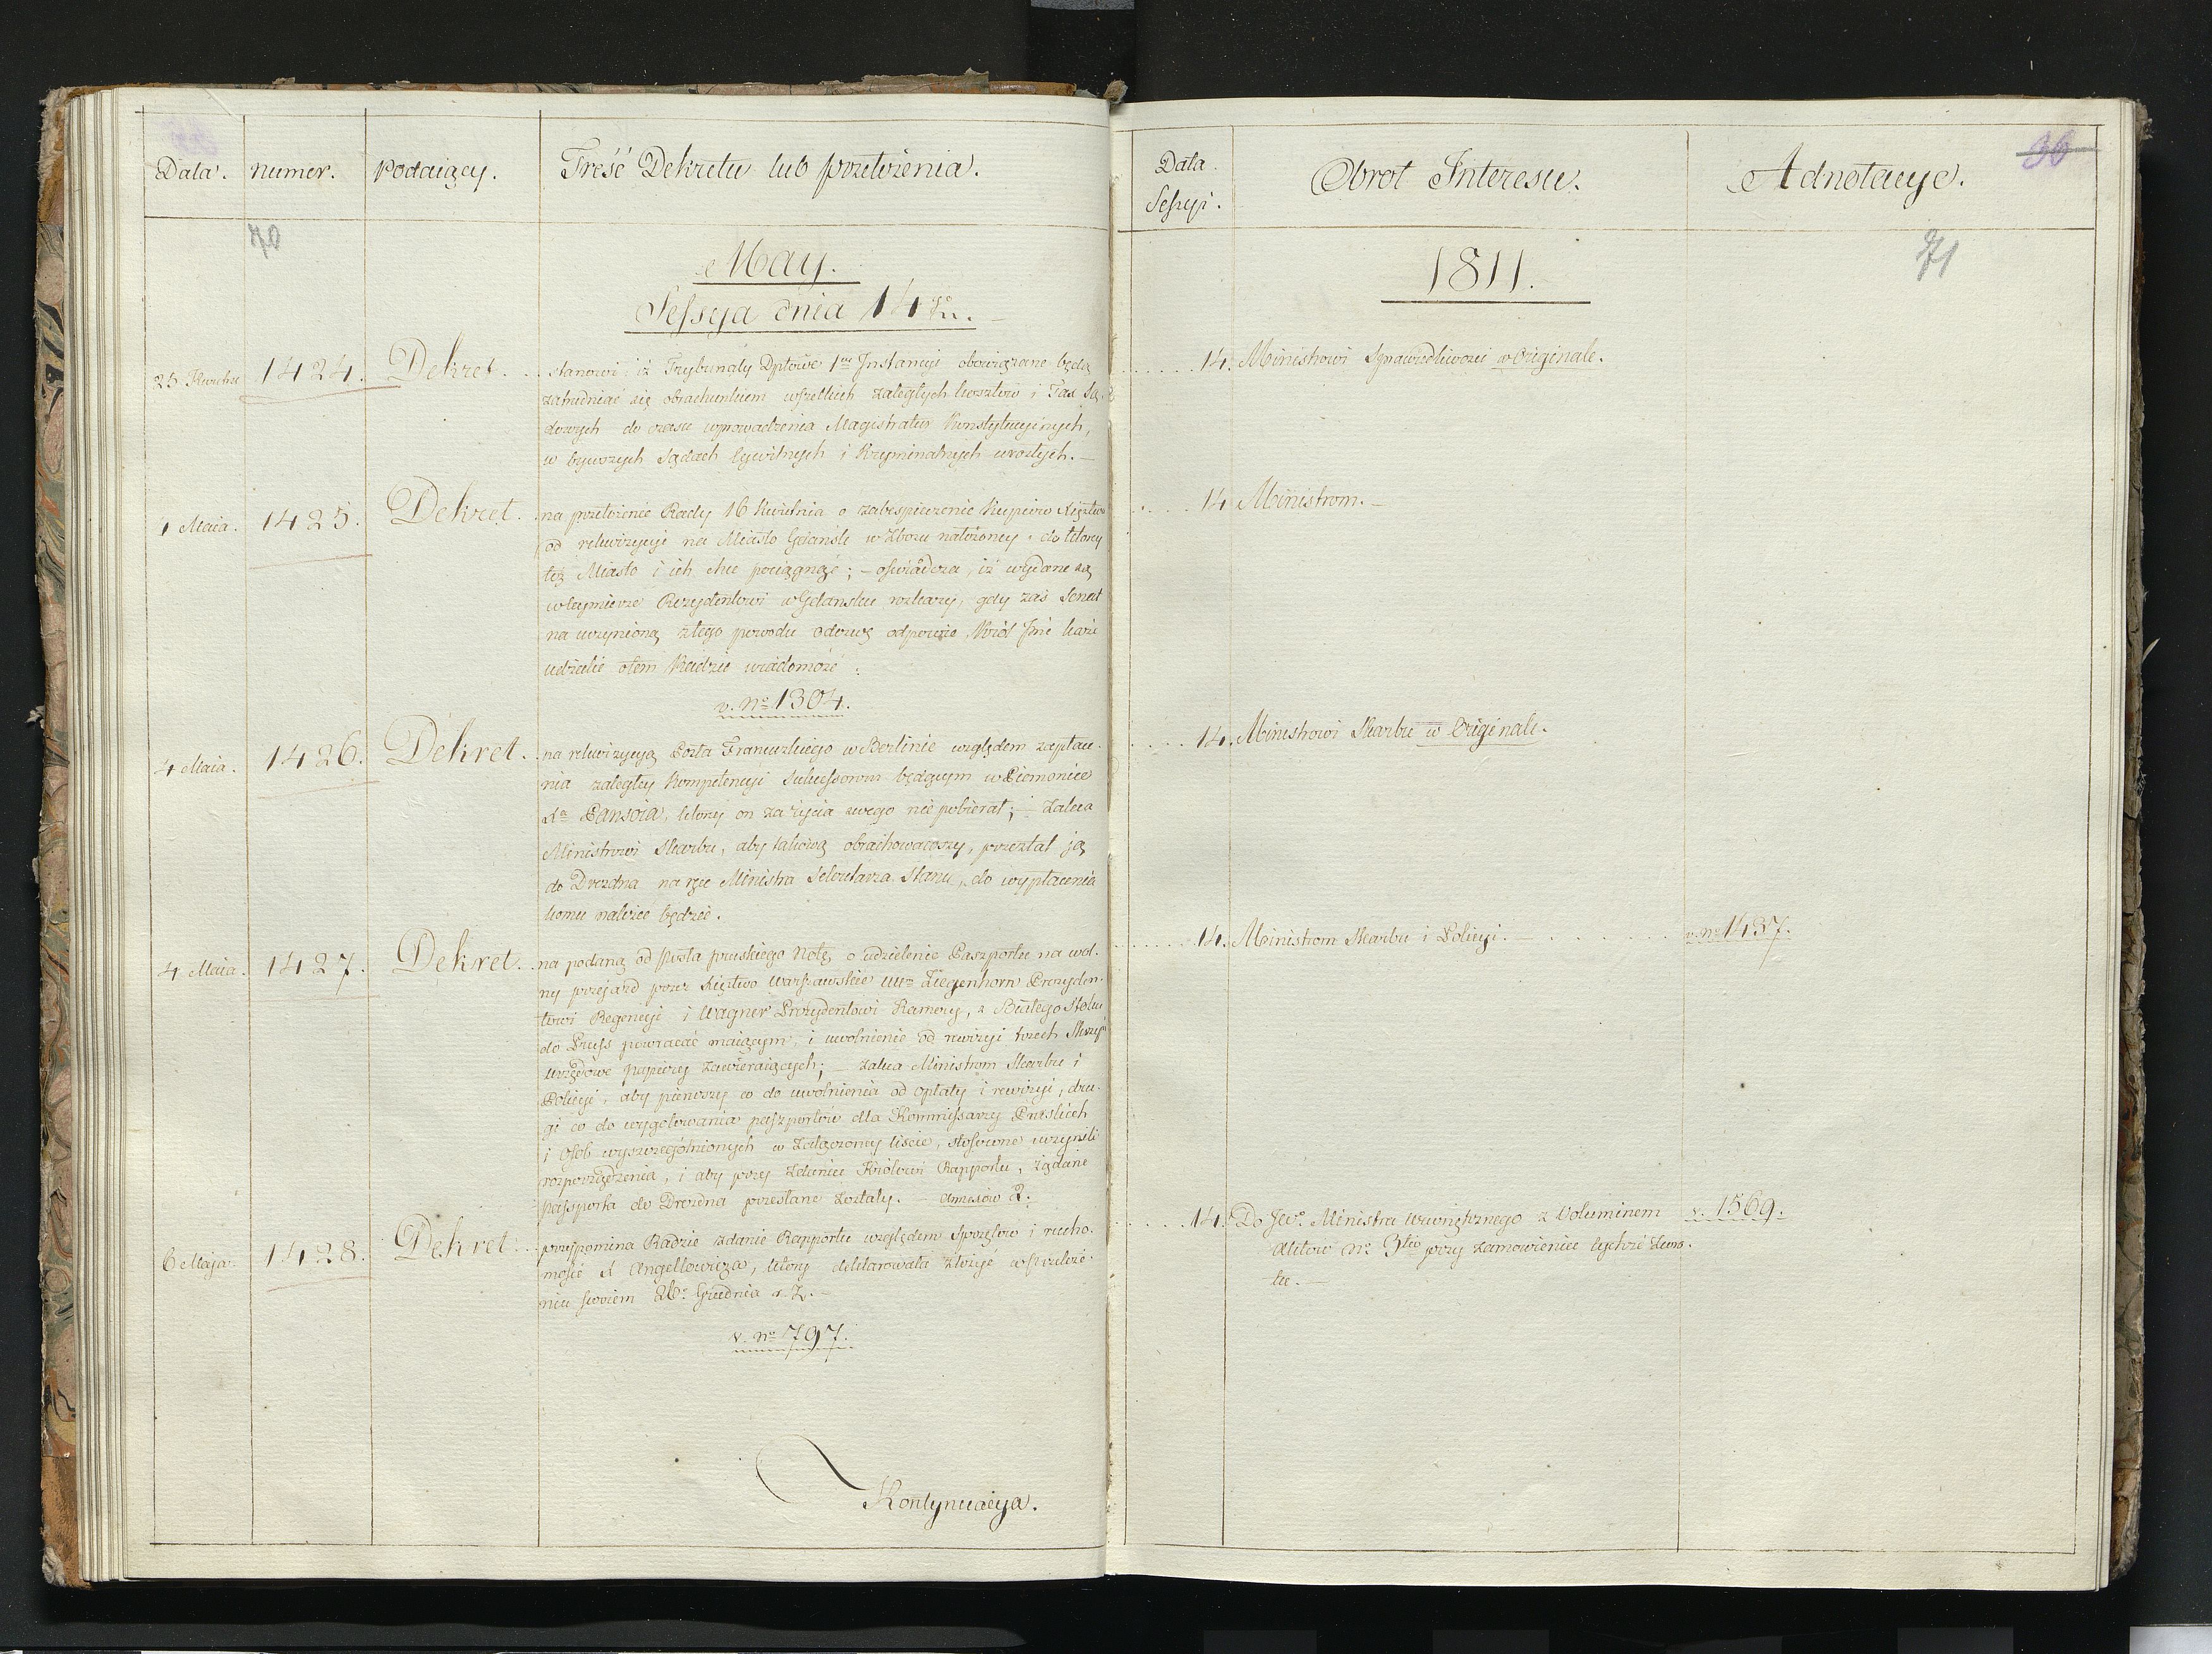 Data. numer. Podaiący. Treść Dekretu lub przełożenia.
70
May.
Sessya dnia 14 go.
25 Kwietn 1424. Dekret. stanowi iż Trybunały Dptowe 1ey Instancyi obowiązane będą
zatrudniać się obrachunkiem wszelkich zaległych kosztów i Tax Są-
dowych do czasu wprowadzenia Magistratur Konstytucyinych,
w bywszych Sądach Cywilnych i Kryminalnych urosłych. –
1 Maia. 1425. Dekret. na przełożenie Rady 16 Kwietnia o zabespieczenie Kupców Xięztwa
od rekwizycyi na Miasto Gdańsk w Zbożu nałożoney, do którey
też Miasto i ich chce pociągnąć; – oświadcza, iż wydane są
w teymierze Rezydentowi w Gdańsku rozkazy, gdy zaś Senat
na uczynioną z tego powodu odezwę odpowie, Król Jmć każe
udzielić otem Radzie wiadomość:
v. No 1304.
4 Maia. 1426. Dekret. na rekwizycyą Posła Francuzkiego w Berlinie względem zapłace-
nia zaległey Kompetencyi sukcessorom będącym w Piemoncie
Xa Pansoia, którey on za życia swego nie pobierał; – zaleca
Ministrowi Skarbu, aby takową obrachowawszy, przesłał ją
do Drezdna na ręce Ministra Sekretarza Stanu, do wypłacenia
komu należeć będzie.
4 Maia. 1427. Dekret. na podaną od Posła pruskiego Notę, o udzielenie Paszportu na wol-
ny przejazd przez Xięztwo Warszawskie Ziegenhorn Prezyden-
towi Regencyi i Wagner Prezydentowi Kamery, z Białego Stoku
do Pruss powracać maiącym, i uwolnienie od rewizyi trzech Skrzyń
urzędowe papiery zawieraiących; – zaleca Ministrom Skarbu i
Policyi, aby pierwszy co do uwolnienia od opłaty i rewizyi, dru-
gi co do wygotowania paszportów dla Kommissarzy Pruskich
i osób wyszczególnionych w załączoney liście, stosowne uczynili
rozporządzenia, i aby przy zdaniu Królowi Rapportu, żądane
passporta do Drezdna przesłane zostały. – Annexów 2.
6 Maja. 1428. Dekret. przypomina Radzie zdanie Rapportu względem Sprzętów i rucho-
mości X Angellowicza, który deklarowała złożyć w przełoże-
niu swoiem 26o Grudnia r. z. –
v. No 797.
Kontynuacya.
Data Sessyi. Obrot Interesu. Adnotacye.
36
71
1811.
14. Ministrowi Sprawiedliwości w Originale.
14 Ministrom. –
14. Ministrowi Skarbu w Originale.
14. Ministrom Skarbu i Policyi. – v. No 1437.
14. Do Jeo. Ministra Wewnętrznego z Voluminem v. 1569.
Aktów No. 3tio przy zamowieniu tychże zwro-
tu. –